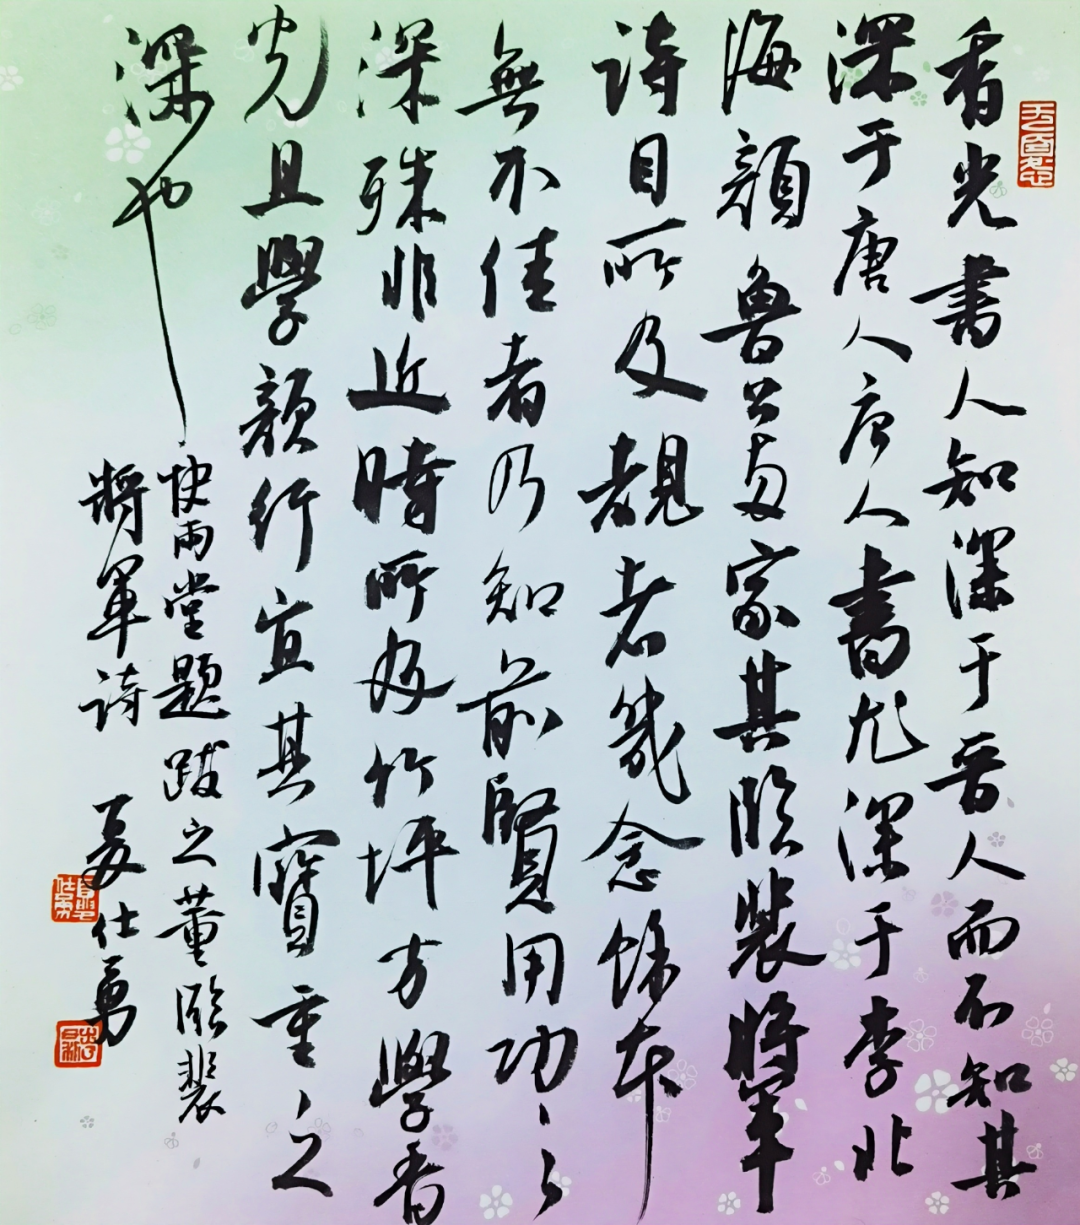 香光書人知深于晋人而不知其
深于唐人唐人書尤深于李北
海顏魯公两家其臨裴將軍
詩目所及覩者幾念餘本
無不佳者乃知前賢用功之
深殊非近時所及竹坪方學香
光且學顏行宜其寶重之
深也
快雨堂題跋之董臨裴
將軍詩
夏仕勇